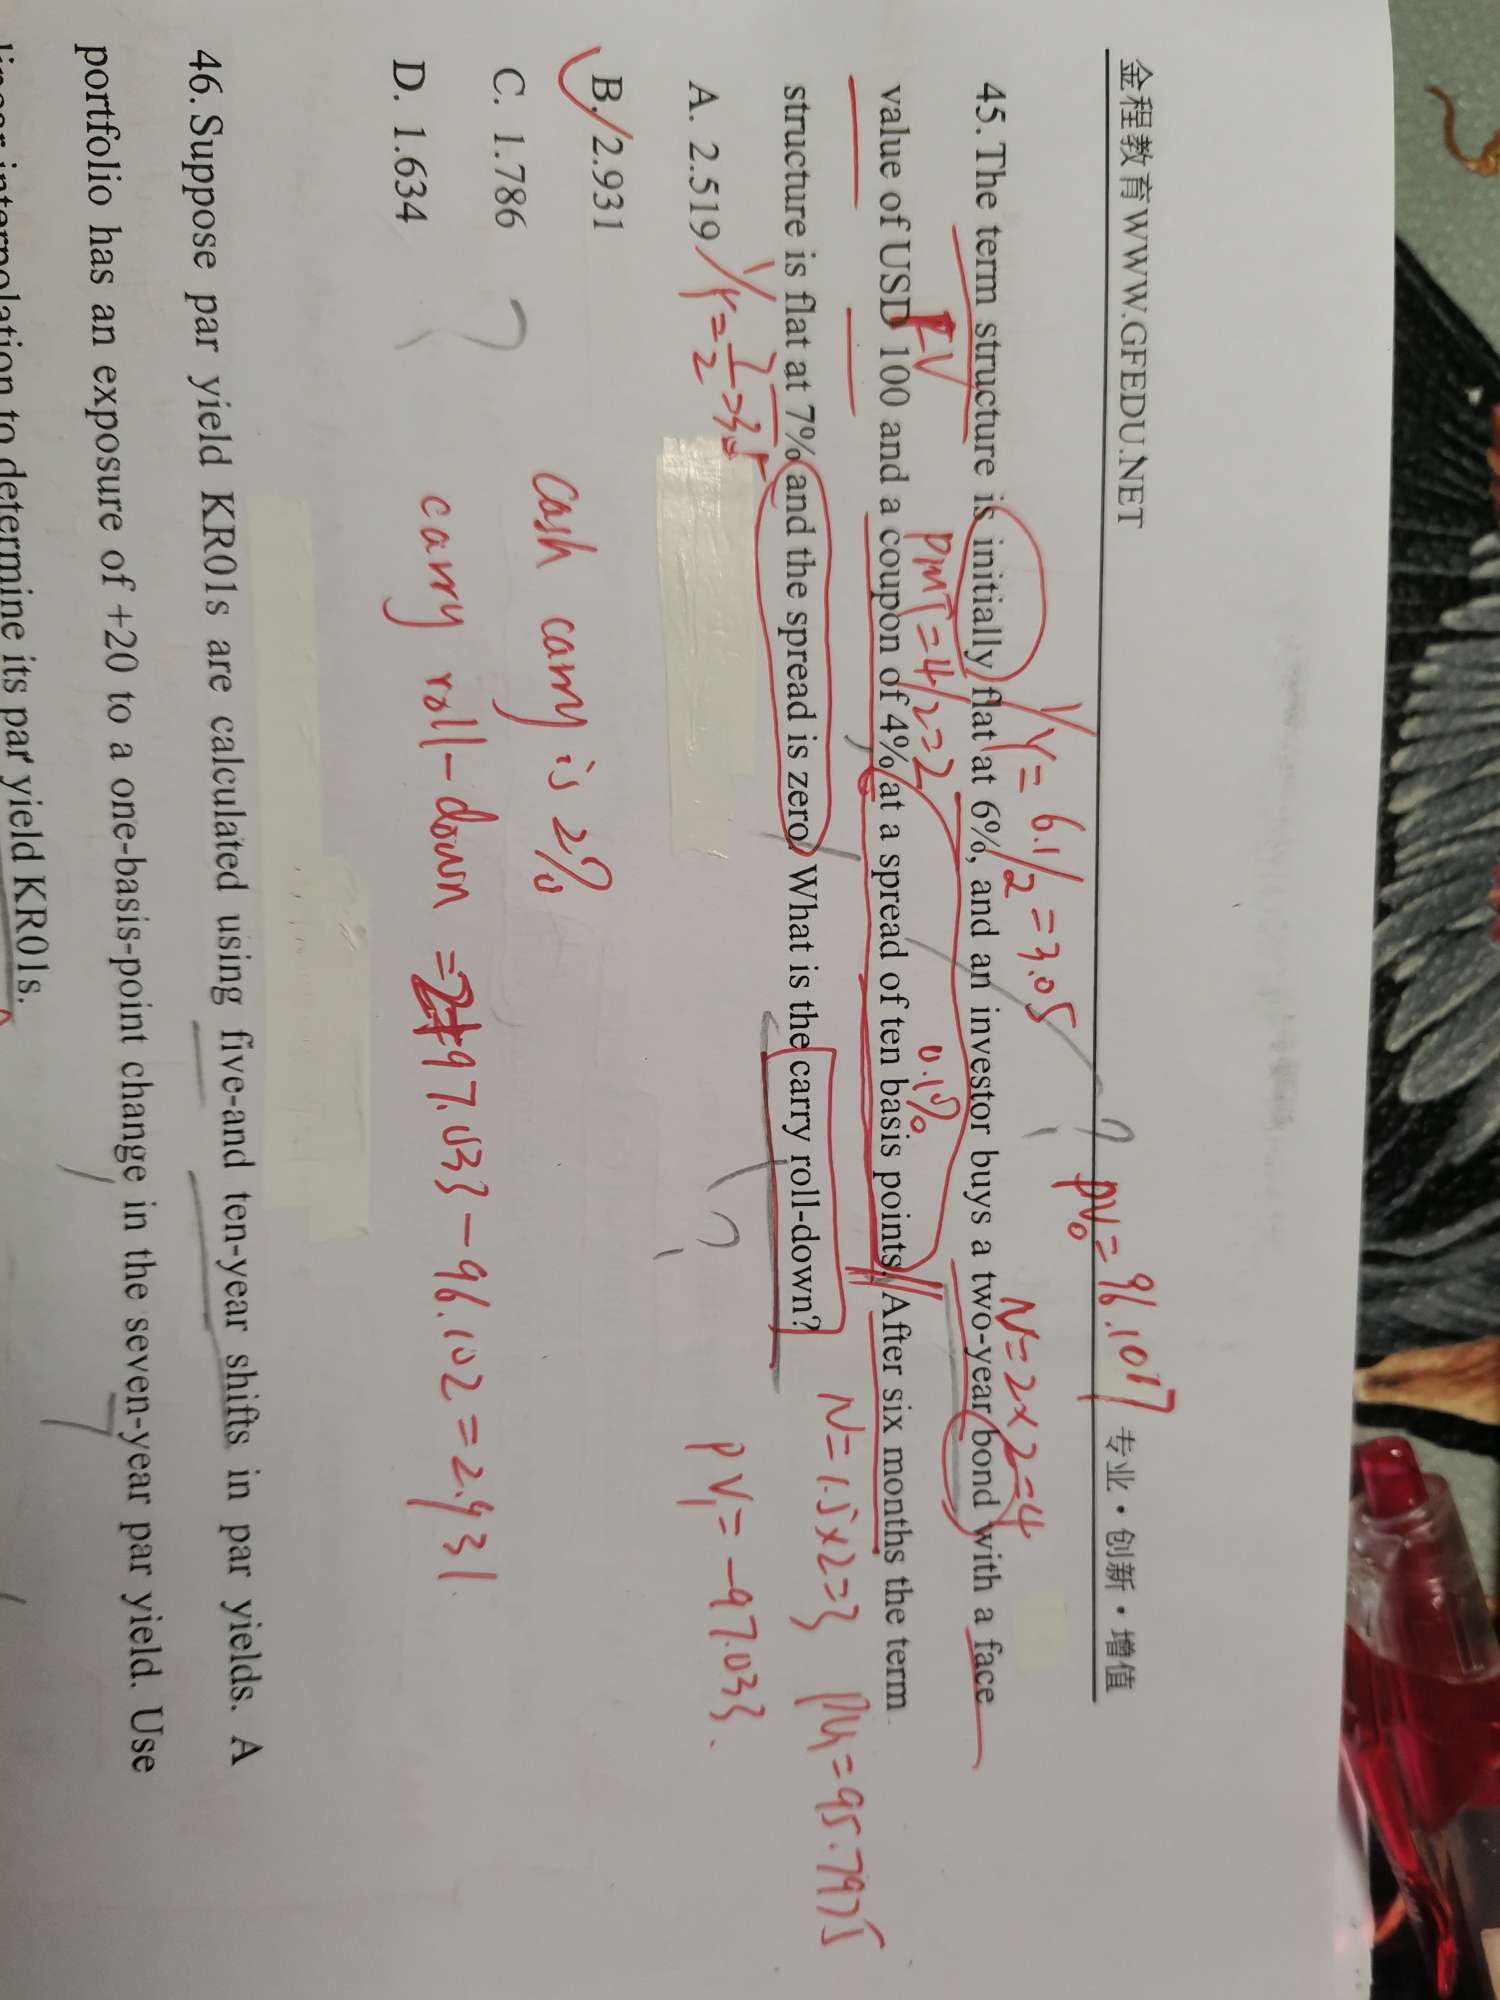 金程教育WWW.GFEDU.NET 专业·创新·增值
PV₀=96.1017
1/Y=6.1/2=3.05 N=2×2=4
45. The term structure is initially flat at 6%, and an investor buys a two-year bond with a face
FV PMT=4/2=2 0.1%
value of USD 100 and a coupon of 4% at a spread of ten basis points. After six months the term
structure is flat at 7% and the spread is zero. What is the carry roll-down?
N=1.5×2=3 PV1=95.7975
1/Y=7/2=3.5
A. 2.519
PV₁=-97.033.
B. 2.931
C. 1.786
cash carry is 2%
D. 1.634
carry roll-down =2+97.033-96.102=2.931.
46. Suppose par yield KR01s are calculated using five-and ten-year shifts in par yields. A
portfolio has an exposure of +20 to a one-basis-point change in the seven-year par yield. Use
linear interpolation to determine its par yield KR01s.